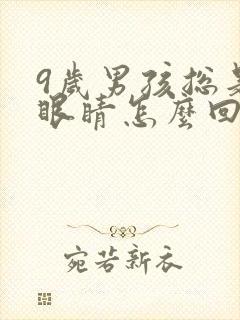 9歲男孩總是
眼睛怎麼回
宛若新衣